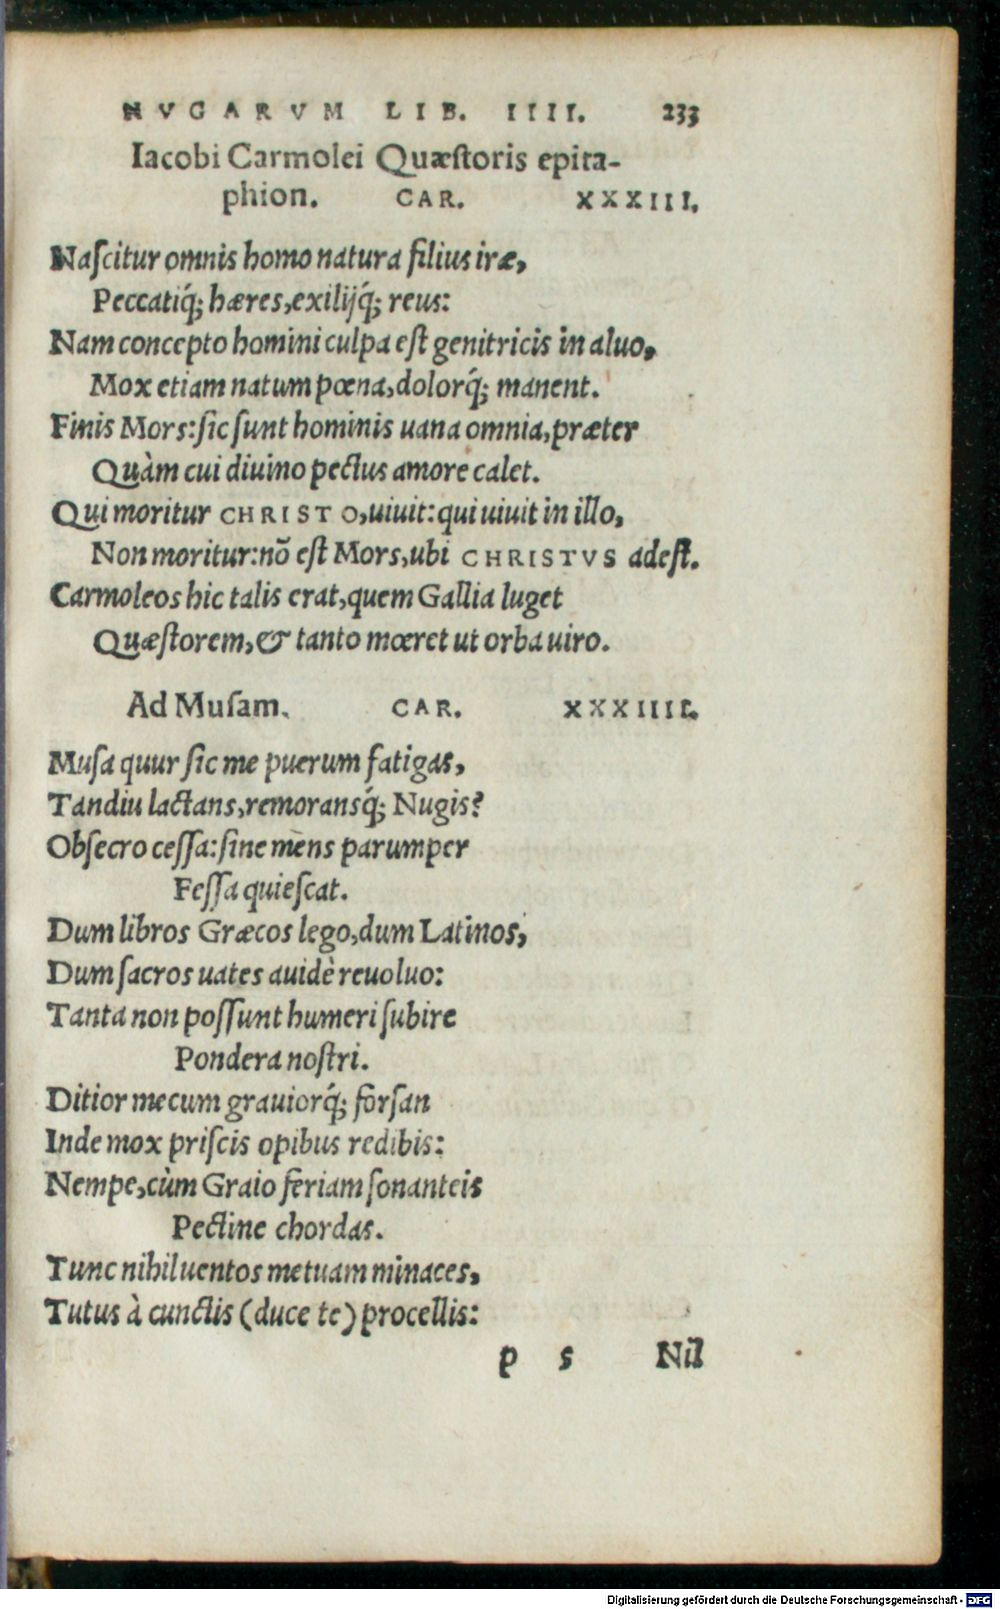 NVGARVM LIB. IIII. 233
Iacobi Carmolei Quæſtoris epita-
phion. CAR. XXXIII.
Naſcitur omnis homo natura filius iræ,
Peccatiq́; hæres, exilijq́; reus:
Nam concepto homini culpa eſt genitricis in aluo,
Mox etiam natum pœna, dolorq́; manent.
Finis Mors: ſic ſunt hominis uana omnia, præter
Quàm cui diuino pectus amore calet.
Qui moritur CHRISTO, uiuit: qui uiuit in illo,
Non moritur: nõ eſt Mors, ubi CHRISTVS adeſt.
Carmoleos hic talis erat, quem Gallia luget
Quæſtorem, & tanto mœret ut orba uiro.
Ad Muſam. CAR. XXXIIII.
Muſa quur ſic me puerum fatigas,
Tandiu lactans, remoransq́; Nugis?
Obſecro ceſſa: ſine mens parumper
Feſſa quieſcat.
Dum libros Græcos lego, dum Latinos,
Dum ſacros uates auidè reuoluo:
Tanta non poſſunt humeri ſubire
Pondera noſtri.
Ditior mecum grauiorq́; forſan
Inde mox priſcis opibus redibis:
Nempe, cùm Graio feriam ſonanteis
Pectine chordas.
Tunc nihil uentos metuam minaces,
Tutus à cunctis (duce te) procellis:
p s Nil
Digitalisierung gefördert durch die Deutsche Forschungsgemeinschaft - DFG